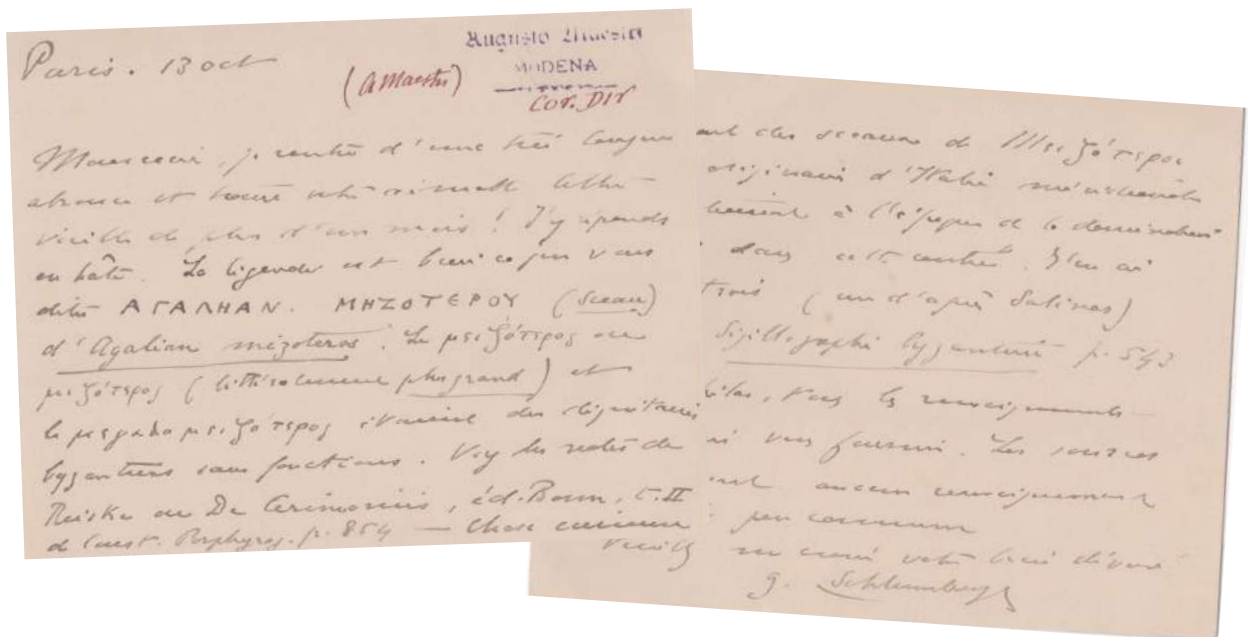 Paris. 13 oct
(A Maestri)
Augusto Maestri
MODENA
Cor. Dir
Monsieur, je rentre d'une très longue
absence et trouve votre aimable lettre
vieille de plus d'un mois ! J'y réponds
en hâte. La légende est bien ce que vous
dites ΑΓΑΛΗΑΝ. ΜΗΖΟΤΕΡΟΥ (Sceau)
d'Agalian mizoteros. Le μειζότερος ou
μειζότερος (littéralement plus grand) et
le μεγαλομειζότερος étaient des dignitaires
byzantins sans fonctions. Voy les notes de
Reiske au De Cerimoniis, éd. Bonn, t. II
de Const. Porphyrog. p. 854 — Chose curieuse
des sceaux de Μειζότερος
originaires d'Italie méridionale
à l'époque de la domination
dans cette contrée. J'en ai
trois (un d'après Salinas)
Sigillographie byzantine p. 543
tous les renseignements
vous fournir. Les sources
aucun renseignement
peu commun
Veuillez me croire votre bien dévoué
G. Schlumberger